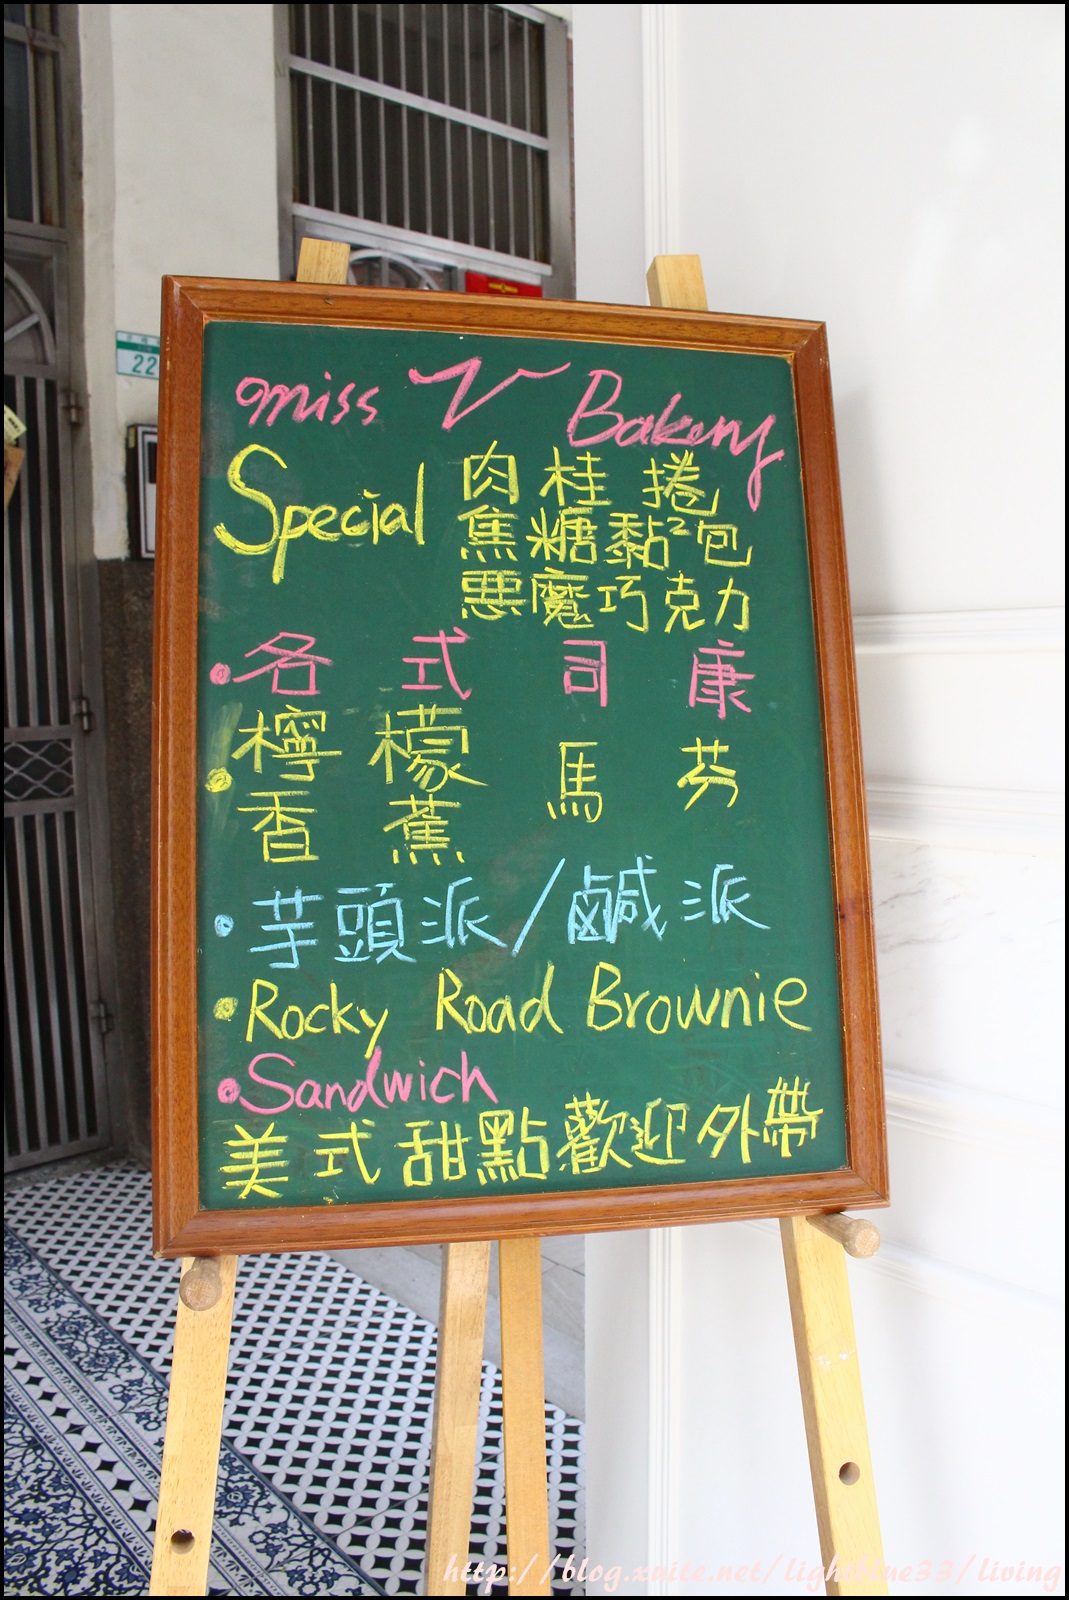 miss V Bakery
Special 肉桂捲
焦糖黏²包
惡魔巧克力
•各式司康
•檸檬 馬芬
香蕉
•芋頭派/鹹派
•Rocky Road Brownie
•Sandwich
美式甜點歡迎外帶
22
http://blog.xuite.net/lightblue33/living